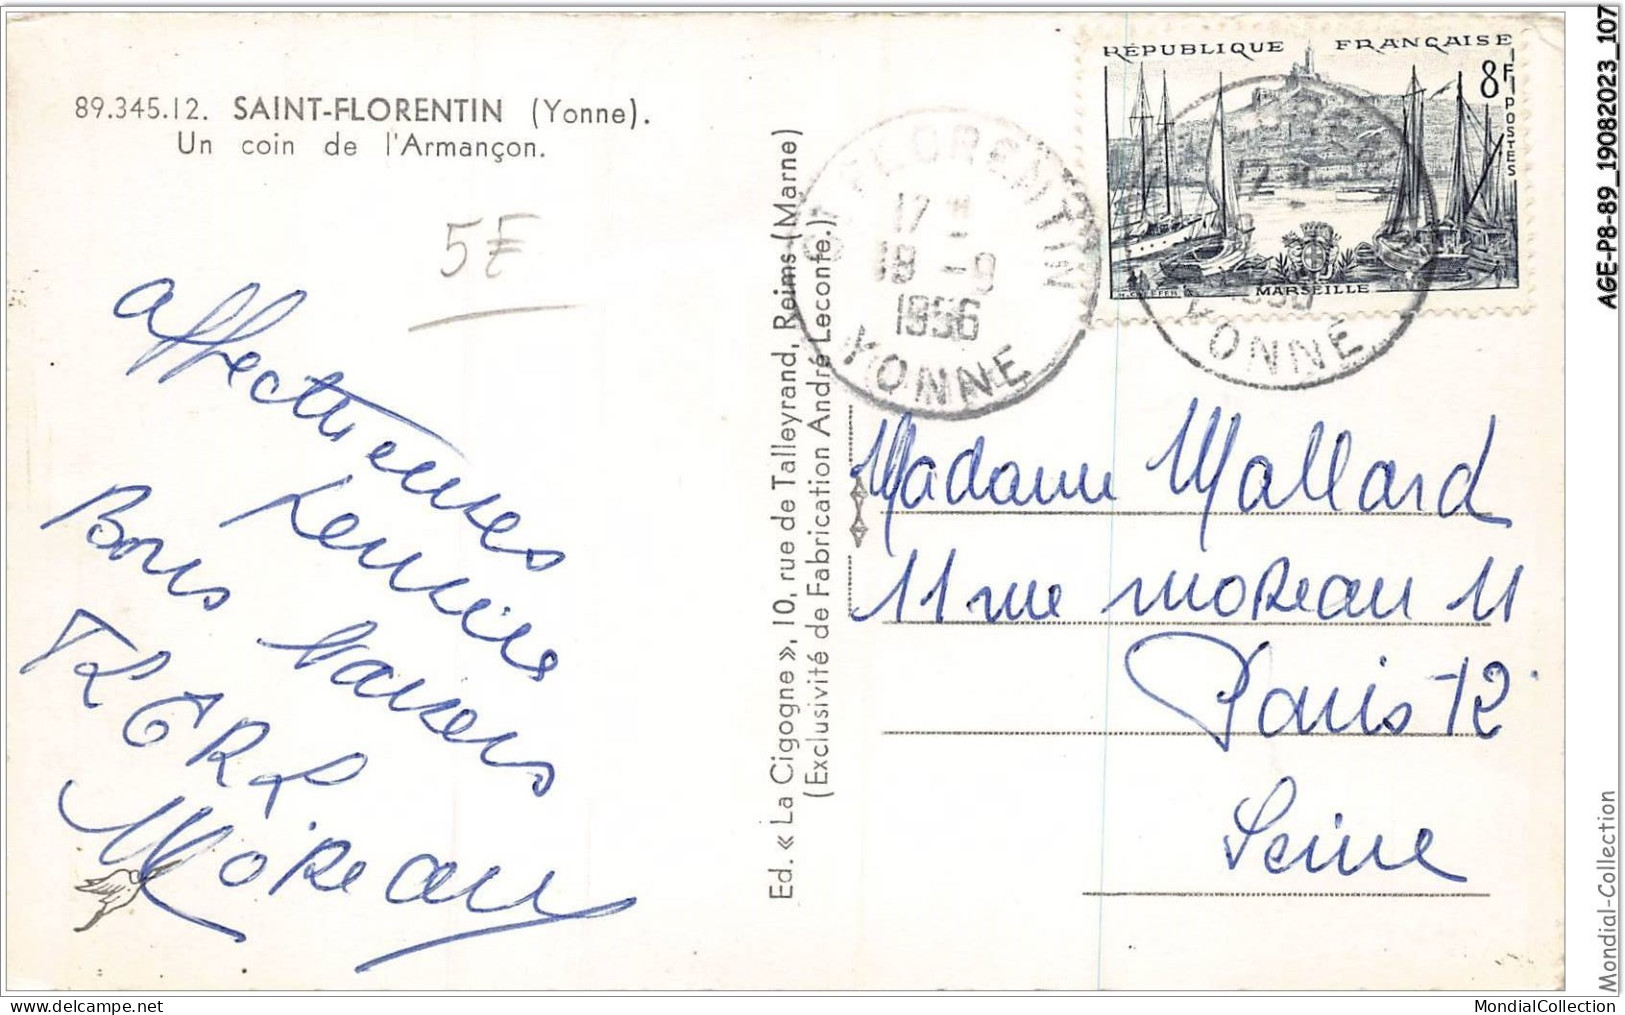 89.345.12. SAINT-FLORENTIN (Yonne).
Un coin de l'Armançon.
5F
affectueuses
Bons baisers
Moreau
Ed. « La Cigogne », 10, rue de Talleyrand, Reims (Marne)
(Exclusivité de Fabrication André Leconte.)
ST FLORENTIN
17 H
18 -9
1956
YONNE
RÉPUBLIQUE FRANÇAISE
8F
POSTES
MARSEILLE
1956
YONNE
Madame Mallard
11 rue moreau 11
Paris 12
Seine
AGE-P8-89_19082023_107
Mondial-Collection
MondialCollection